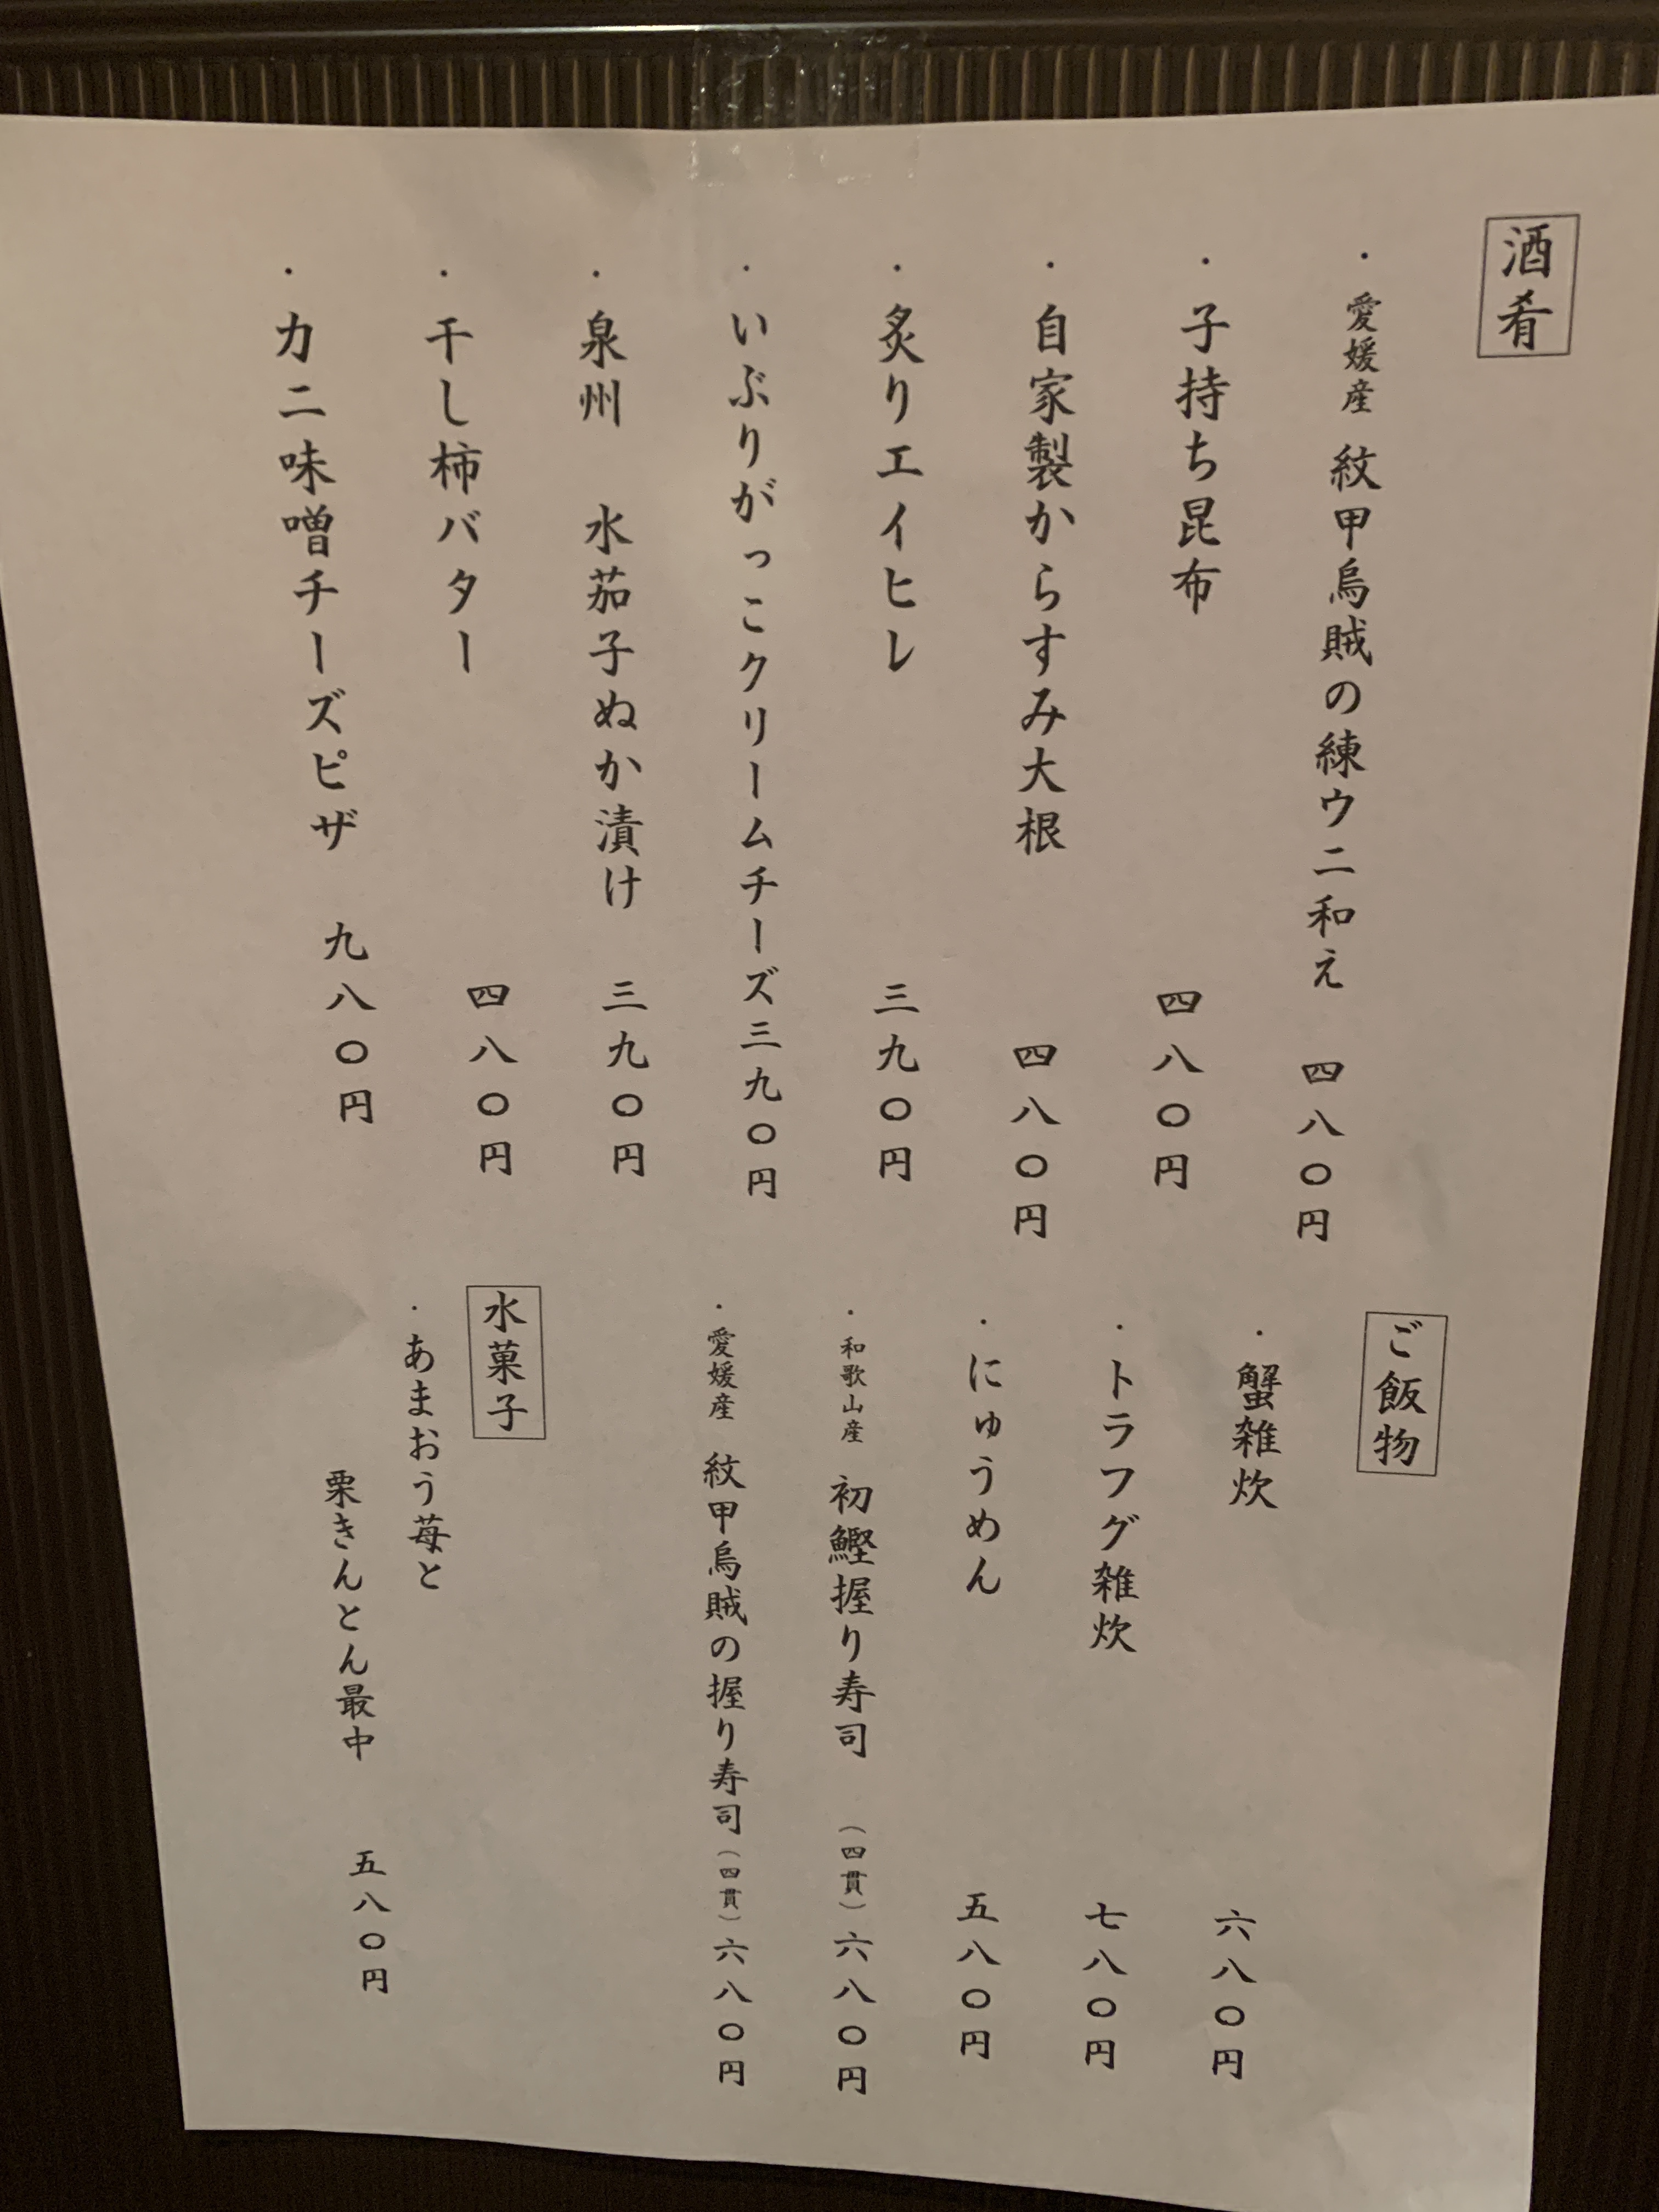 酒肴
・愛媛産 紋甲烏賊の練ウニ和え 四八〇円
・子持ち昆布 四八〇円
・自家製からすみ大根 四八〇円
・炙りエイヒレ 三九〇円
・いぶりがっこクリームチーズ三九〇円
・泉州 水茄子ぬか漬け 三九〇円
・干し柿バター 四八〇円
・カニ味噌チーズピザ 九八〇円
ご飯物
・蟹雑炊 六八〇円
・トラフグ雑炊 七八〇円
・にゅうめん 五八〇円
・和歌山産 初鰹握り寿司 (四貫)六八〇円
・愛媛産 紋甲烏賊の握り寿司(四貫)六八〇円
水菓子
・あまおう苺と
栗きんとん最中 五八〇円